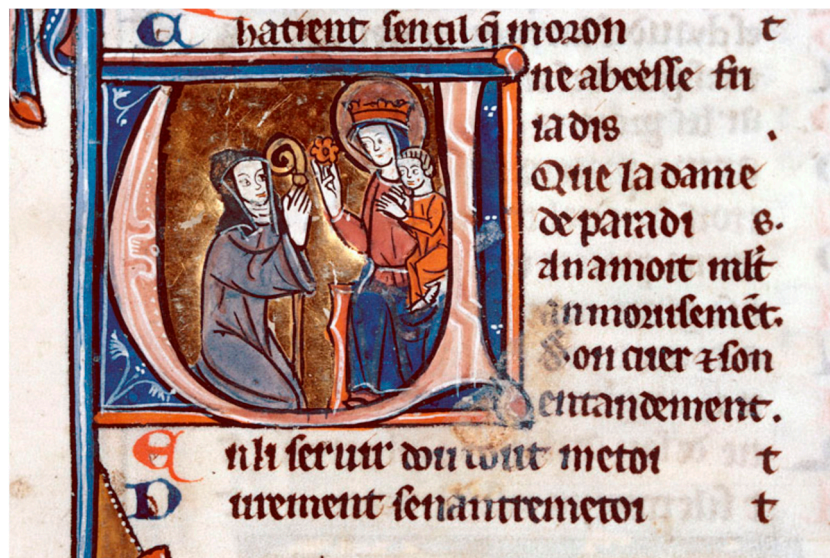 A hatient sen cil q̄ moron t
Une abeesse fu
iadis .
Que la dame
de paradi s.
An amoit ml̄t
amorusemēt.
Son cuer ⁊ son
entandement.
En li seruir dou tout metoi t
Durement sen antremetoi t